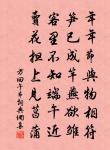 年年节与物相符
笋已成竿燕欲雏
客里不知端午近
卖花担上见菖蒲
方回午节词典调集